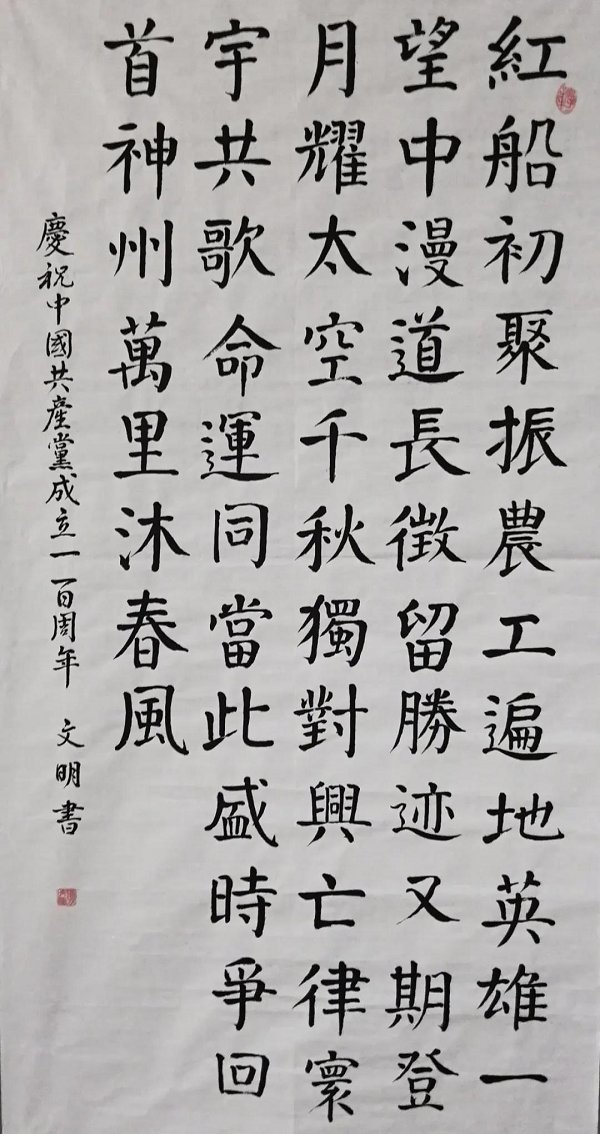 紅船初聚振農工遍地英雄一
望中漫道長徵留勝迹又期登
月耀太空千秋獨對興亡律寰
宇共歌命運同當此盛時爭回
首神州萬里沐春風
慶祝中國共產黨成立一百周年 文明書